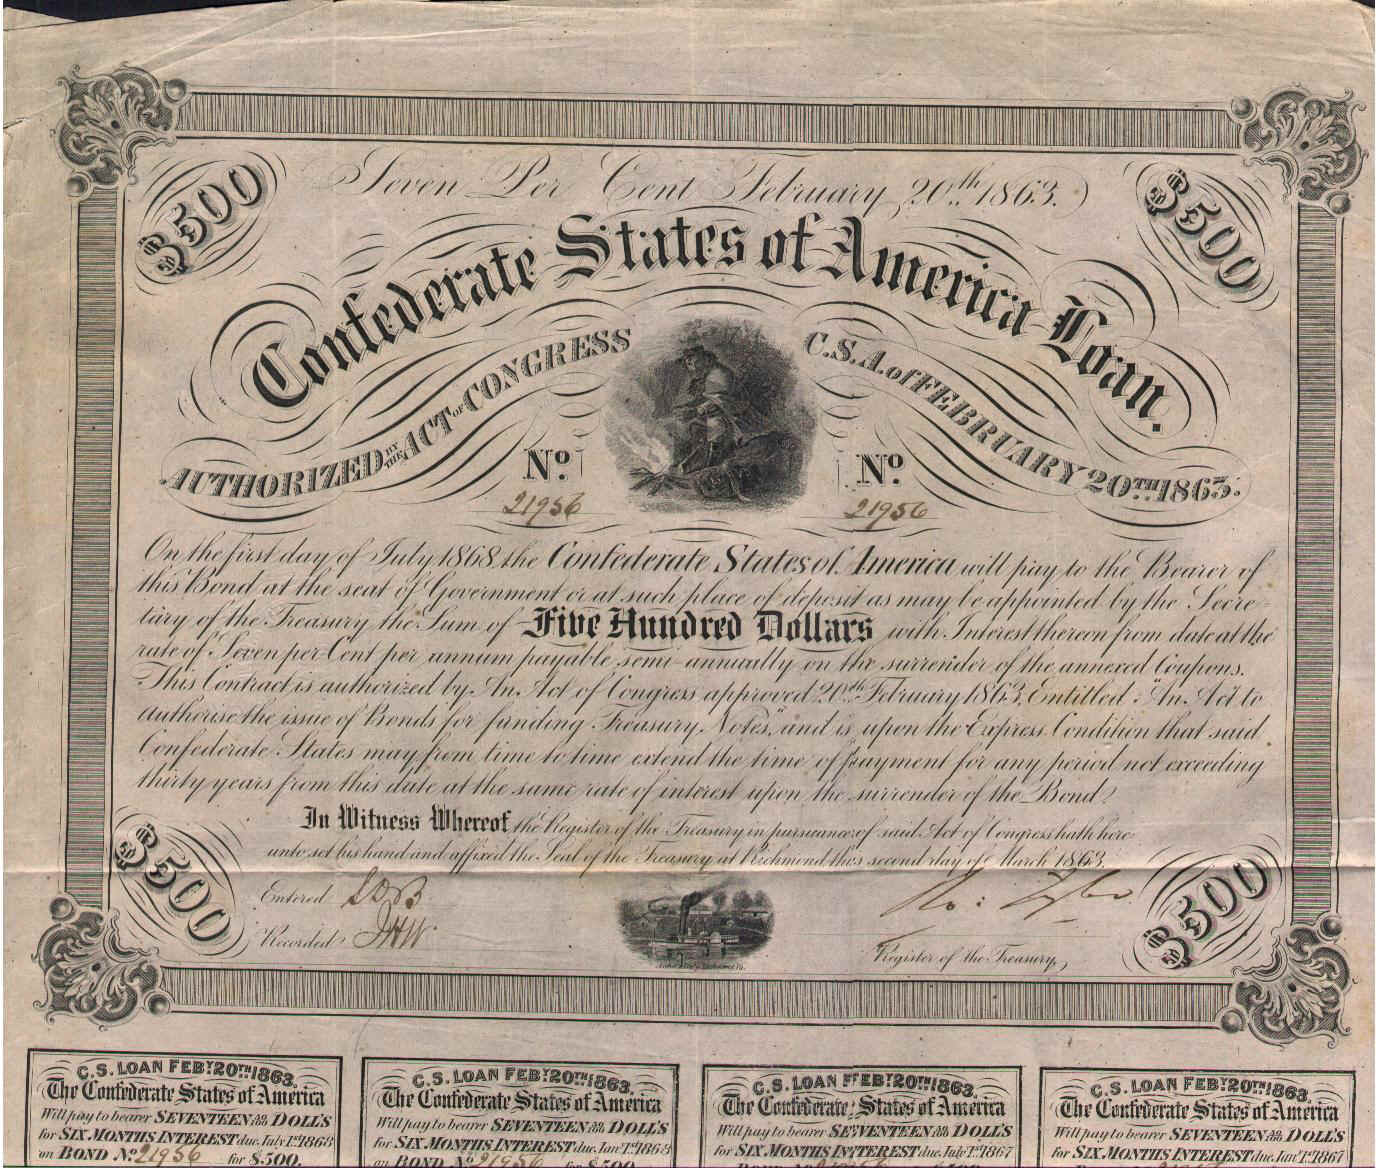 Seven Per Cent February 20th 1863.
$500
$500
Confederate States of America Loan.
AUTHORIZED BY THE ACT OF CONGRESS
C.S.A. of FEBRUARY 20TH 1863.
No.
No.
21956
21956
On the first day of July 1868 the Confederate States of America will pay to the Bearer of
this Bond at the seat of Government or at such place of deposit as may be appointed by the Secre-
tary of the Treasury the Sum of Five Hundred Dollars with Interest thereon from date at the
rate of Seven per Cent per annum payable semi-annually on the surrender of the annexed Coupons.
This Contract is authorized by An Act of Congress approved 20th February 1863, Entitled "An Act to
authorise the issue of Bonds for funding Treasury Notes," and is upon the Express Condition that said
Confederate States may from time to time extend the time of payment for any period not exceeding
thirty years from this date at the same rate of interest upon the surrender of the Bond.
In Witness Whereof the Register of the Treasury in pursuance of said Act of Congress hath here
unto set his hand and affixed the Seal of the Treasury at Richmond this second day of March 1863.
$500
$500
Entered
Recorded
Ro: Tyler
Register of the Treasury,
C.S. LOAN FEBY 20TH 1863.
The Confederate States of America
Will pay to bearer SEVENTEEN 50/100 DOLL'S
for SIX MONTHS INTEREST due July 1st 1868
on BOND No 21956 for $500.
C.S. LOAN FEBY 20TH 1863.
The Confederate States of America
Will pay to bearer SEVENTEEN 50/100 DOLL'S
for SIX MONTHS INTEREST due Jany 1st 1868
on BOND No 21956 for $500
C.S. LOAN FEBY 20TH 1863.
The Confederate States of America
Will pay to bearer SEVENTEEN 50/100 DOLL'S
for SIX MONTHS INTEREST due July 1st 1867
C.S. LOAN FEBY 20TH 1863.
The Confederate States of America
Will pay to bearer SEVENTEEN 50/100 DOLL'S
for SIX MONTHS INTEREST due Jany 1st 1867